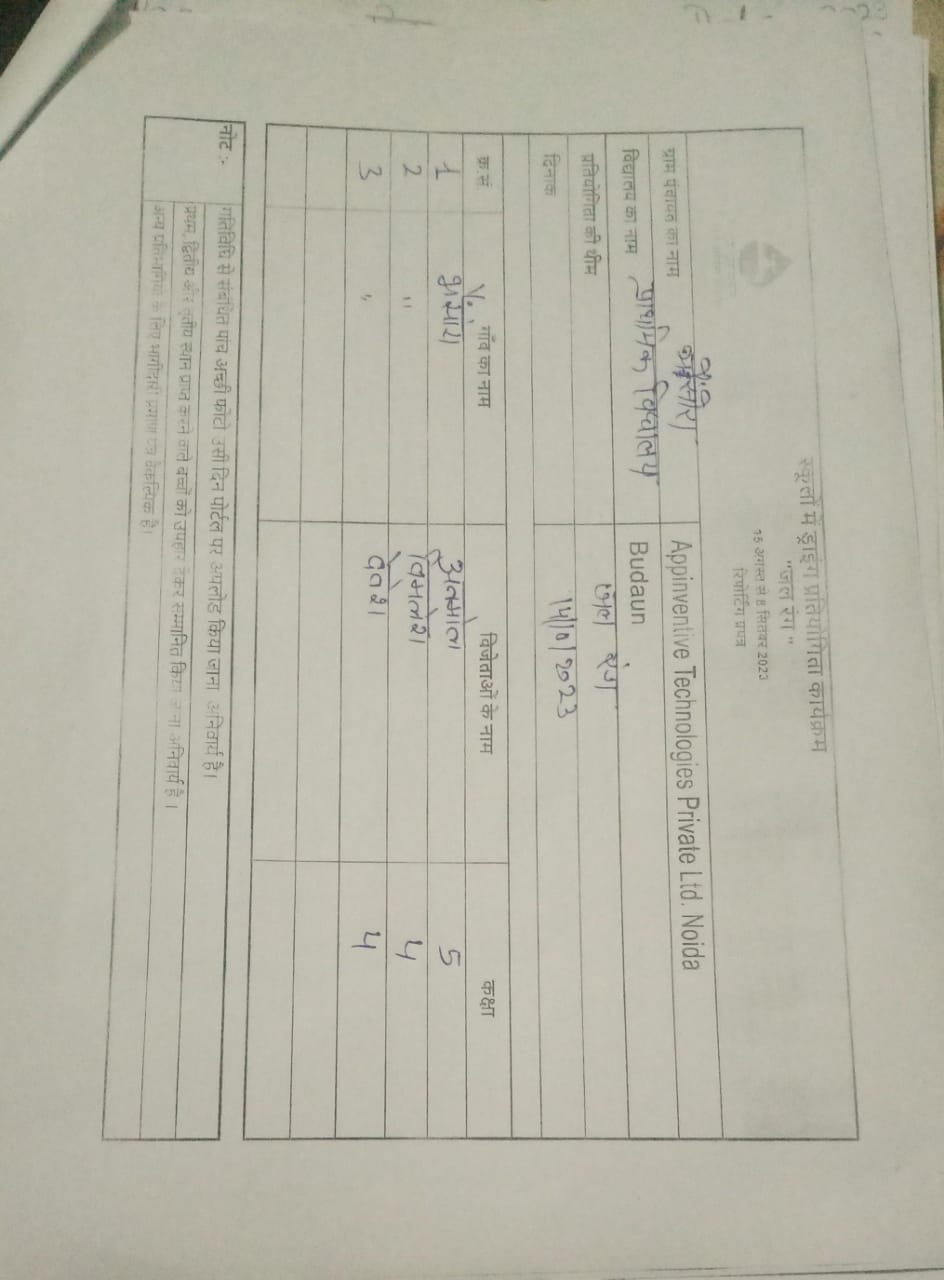 स्कूलों में ड्राइंग प्रतियोगिता कार्यक्रम
"जल रंग"
15 अगस्त से 8 सितंबर 2023
रिपोर्टिंग प्रपत्र
ग्राम पंचायत का नाम Appinventive Technologies Private Ltd. Noida
विद्यालय का नाम प्राथमिक विद्यालय Budaun
प्रतियोगिता की थीम जल रंग
दिनांक
क्र.सं गाँव का नाम विजेताओं के नाम कक्षा
1 अनमोल 5
2 " विमलेश 4
3 " 4
नोट :- गतिविधि से संबंधित पांच अच्छी फोटो उसी दिन पोर्टल पर अपलोड किया जाना अनिवार्य है।
प्रथम, द्वितीय और तृतीय स्थान प्राप्त करने वाले बच्चों को उपहार देकर सम्मानित किया जाना अनिवार्य है ।
अन्य प्रतिभागियों के लिए भागीदारी प्रमाण पत्र वैकल्पिक है।